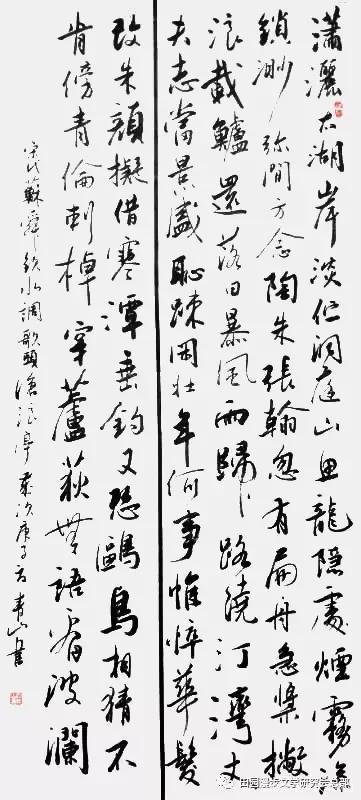 瀟灑太湖岸淡伫洞庭山魚龍隱處煙霧深
鎖渺弥間方念陶朱張翰忽有扁舟急槳撇
浪載鱸還落日暴風雨歸路繞汀灣丈
夫志當景盛恥疎閑壯年何事憔悴華髮
改朱顔擬借寒潭垂釣又恐鷗鳥相猜不
肯傍青綸刺棹穿蘆荻無語看波瀾
宋代蘇舜欽水調歌頭滄浪亭歲次庚子青山書
田园漫步文学研究会总部